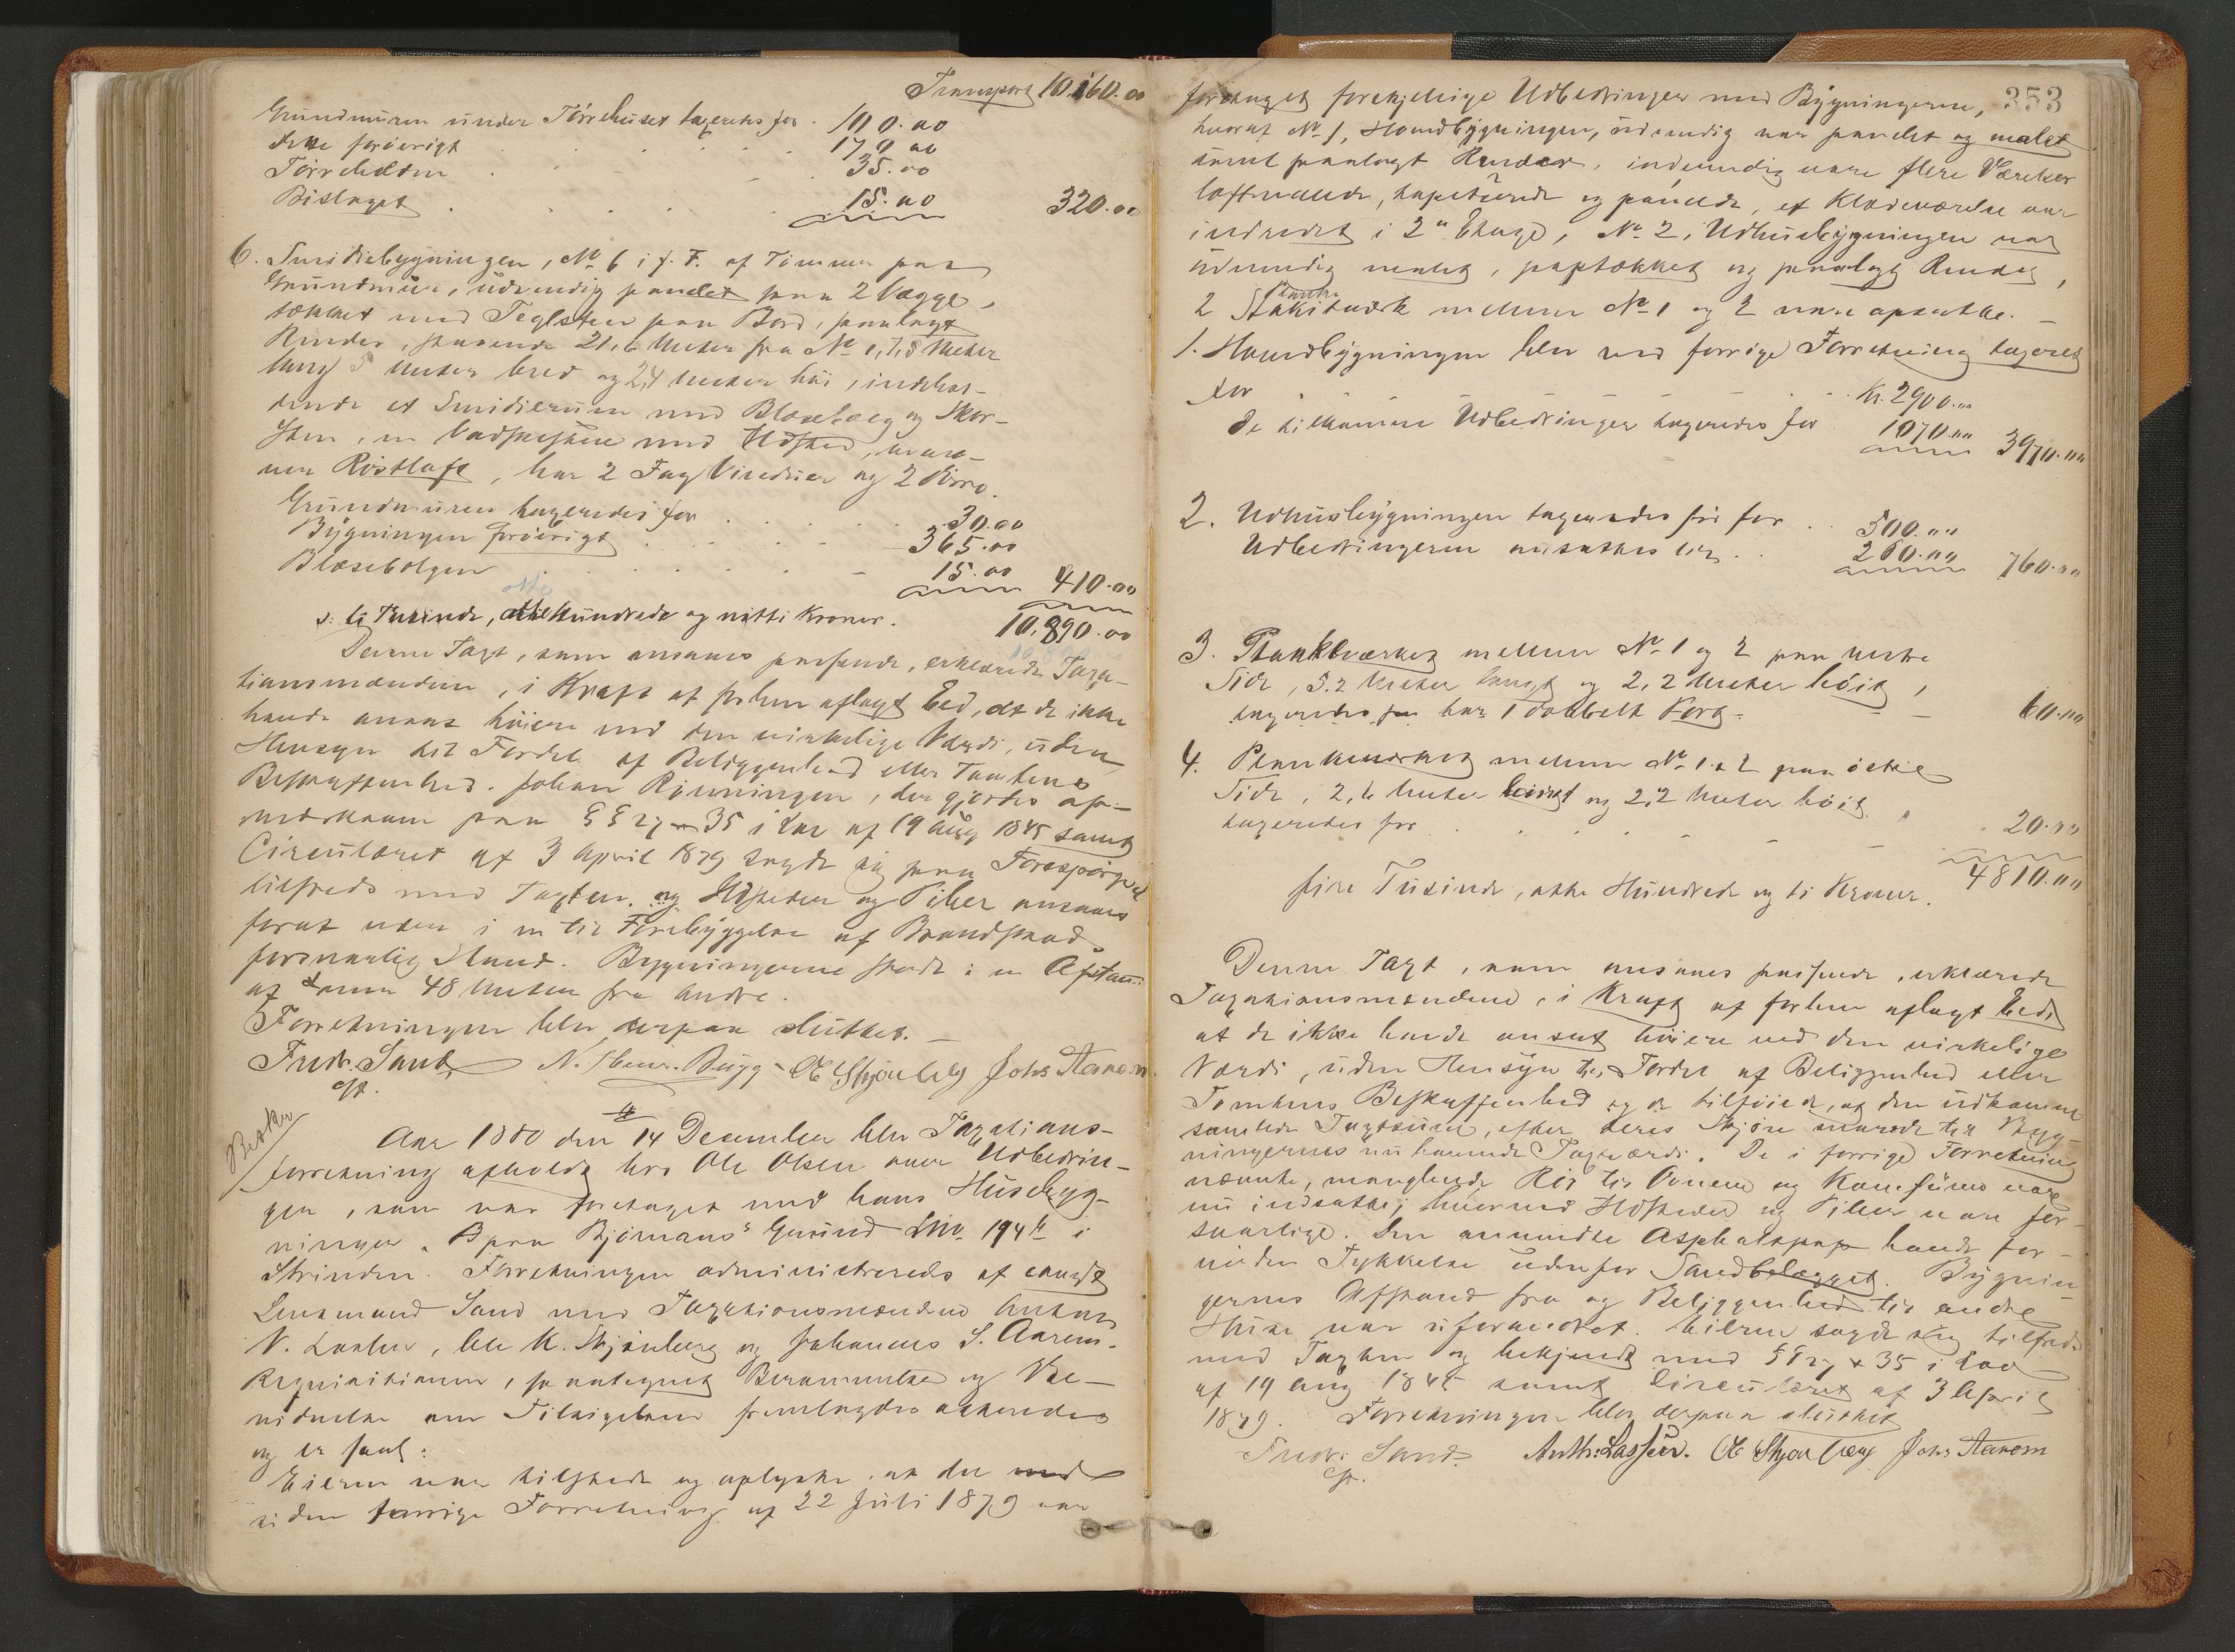 Transport 10.160.00
Grundmuren under Tørrehuset taxeredes for . 100.00
dette forøvrigt . . . . . 170.00
Tørrehelden . . . . . 35.00
Bislaget . . . . . 15.00 320.00
6. Smidiebygningen, No 6 i f. F. af Tømmer paa
Grundmur, udvendig panelet paa 2 Vægge,
tækket med Teglsten paa Bord, paalagt
Render, staaende 21,6 Meter fra No 1, 7,8 Meter
lang 5 Meter bred og 2,4 Meter høi, indehol-
dende et Smidierum med Blæsebælg og Skor-
sten, en med Ildsted, oven-
over Røstloft, har 2 Fag Vinduer og 2 Døre.
Grundmuren taxeredes for . . . . 30.00
Bygningen forøvrigt . . . . 365.00
Blæsebolgen . . . . 15.00 410.00
otte
s: ti Tusinde, otte Hundrede og nitti Kroner. 10.890.00
Denne Taxt, som ansaaes passende, erklærede Taxa-
tionsmændene, i Kraft af forhen aflagt Eed, at de ikke
havde ansat høiere end den virkelige Værdi, uden
Hensyn til Fordel af Beliggenhed eller Tomtens
Beskaffenhed. Johan Rønningen, der gjordes op-
mærksom paa §§ 27 og 35 i Lov af 19 Aug 1845 samt
Circulæret af 3 April 1879 sagde sig paa Forespørgsel
tilfreds med Taxten. og Ildsteder og Piber ansaaes
forat være i en til Forebyggelse af Brandskade
forsvarlig Stand. Bygningerne stode i en Afstand
af omn 48 Meter fra andre.
Forretningen blev derpaa sluttet. —
Fredr. Sand N. Bugg - OK Skjønberg Johs Aarem
cst.
4
Besker
Aar 1880 den 14 December blev Taxations-
forretning afholdt hos Ole Olsen over Udbedrin-
ger, som var foretaget med hans Husebyg-
ninger. B paa Bjørnaas' Grund LNo. 194 b i
Strinden. Forretningen administreredes af const
Lensmand Sand med Taxationsmændene Anton
N. Laahn, Ole K. Skjønberg og Johannes S. Aarem.
Requisitionen, paategnet Berammelse og Vee-
nidnelse om Tilsigelsen fremlagdes oplæstes
og er saal:
Eieren var tilstede og oplyste, at der med
siden forrige Forretning af 22 Juli 1879 var
353
foretaget forskjellige Udbedringer med Bygningerne,
hvoraf No 1, Hovedbygningen, udvendig var panelet og malet
samt paalagt Render, indvendig vare flere Værelser
loftmalede, tapetserede og panelede, et Klædeværelse var
indredet i 2n Etage, No 2, Udhusbygningen var
udvendig malet, paptækket og paalagt Render,
Planke
2 Stakitværk mellem No 1 og 2 vare opsatte. —
1. Hovedbygningen blev ved forrige Forretning taxeret
for . . Kr. 2900.00
De tilkomne Udbedringer taxeredes for 1070.00 3970.00
2. Udhusbygningen taxeredes før for . . 500.00
Udbedringerne ansattes til . . 260.00 760.00
3. Plankeværket mellem No 1 og 2 paa vestre
Side, 5.2 Meter langt og 2,2 Meter høit,
taxeredes for har 1 dobbelt Port - — — 60.00
4. Plankeværket mellem No 1 & 2 paa østre
Side, 2,6 Meter langt og 2,2 Meter høit,
taxeredes for . . . . 20.00
4810.00
fire Tusinde, otte Hundrede og ti Kroner.
Denne Taxt, som ansaaes passende, erklærede
Taxationsmændene, i Kraft af forhen aflagt Eed,
at de ikke havde ansat høiere end den virkelige
Værdi, uden Hensyn til Fordel af Beliggenhed eller
Tomtens Beskaffenhed og de tilføiede, at den udkomne
samlede Taxtsum, efter deres Skjøn svarede til Byg-
ningernes nu havende Taxværdi. De i forrige Forretning
nævnte, manglende Rør til Ovnene og Komfuren vare
nu indsatte; hvorved Ildsteder og Piber vare for-
svarlige. Den anvendte Asphaltpap havde for-
nøden Tykkelse udenfor Sandbelægget. Bygnin-
gernes Afstand fra og Beliggenhed til andre
Huse var uforandret. Eieren sagde sig tilfreds
med Taxten og bekjendt med §§ 27 & 35 i Lov
af 19 Aug 1845 samt Circulæret af 3 April
1879. Forretningen blev derpaa sluttet
Fredr. Sand Anth: Lassen. OK Skjønberg Johs Aarem
cst.